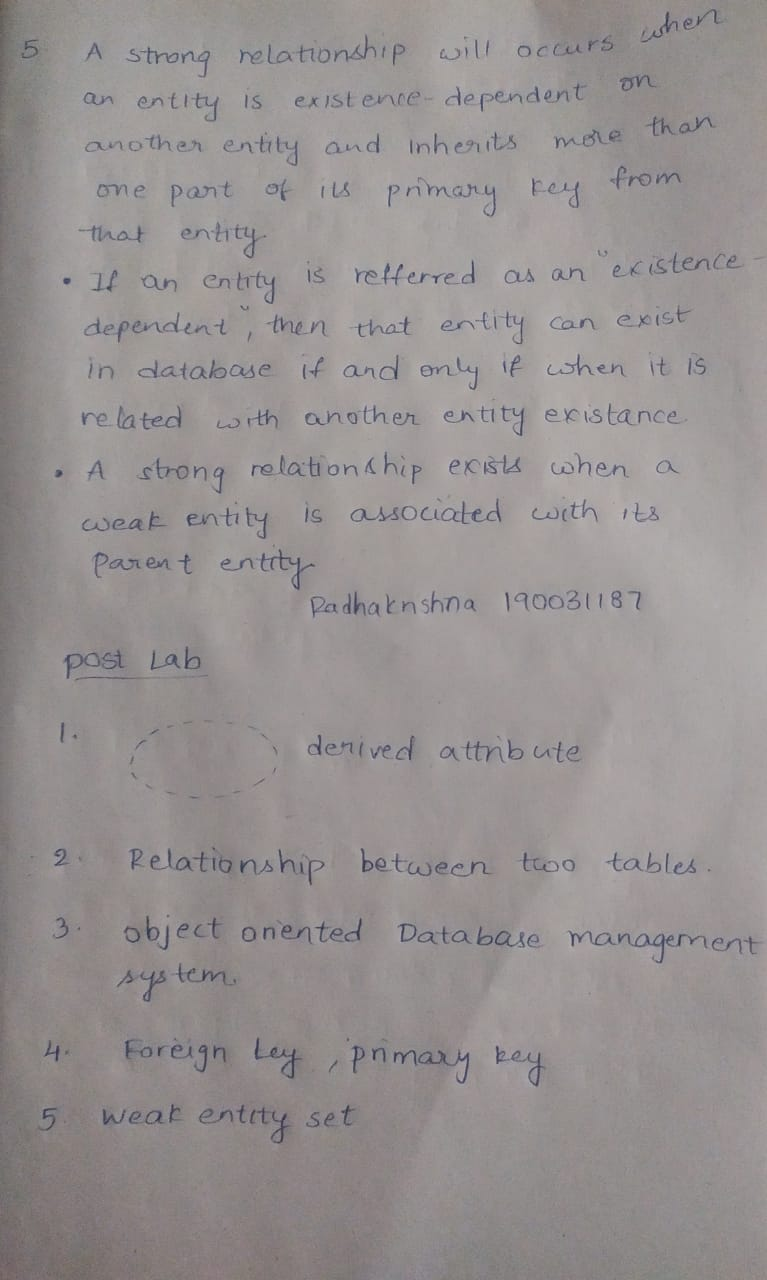 5 A strong relationship will occurs when
an entity is existence-dependent on
another entity and inherits more than
one part of its primary key from
that entity.
• If an entity is refferred as an "existence-
dependent", then that entity can exist
in database if and only if when it is
related with another entity existance.
• A strong relationship exists when a
weak entity is associated with its
parent entity
Radhakrishna 190031187
post Lab
1. derived attribute
2. Relationship between two tables.
3. object oriented Database management
system.
4. Foreign key, primary key
5 weak entity set